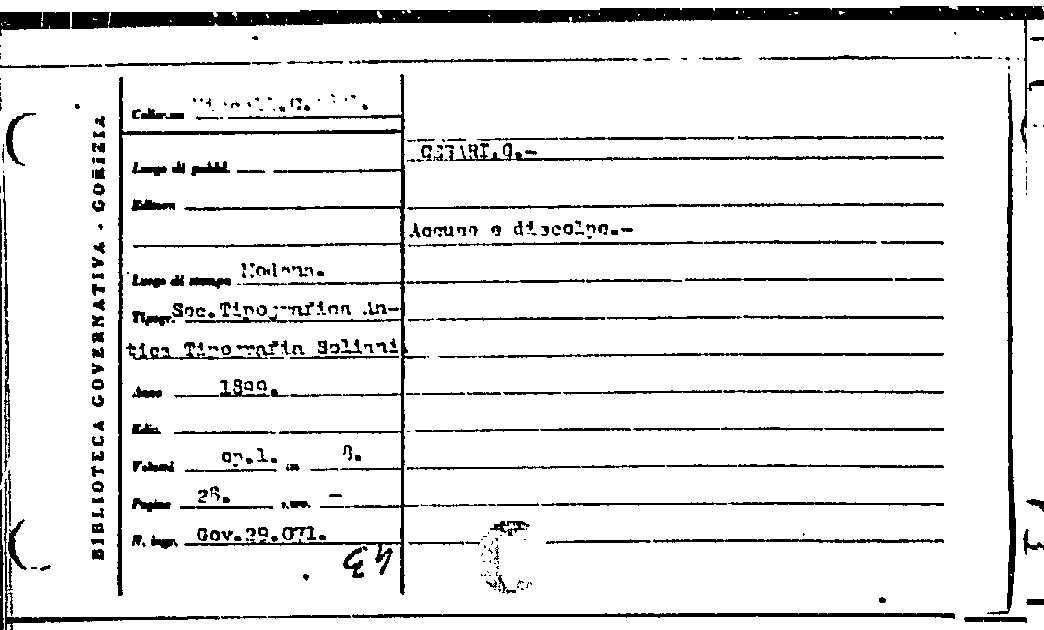 BIBLIOTECA GOVERNATIVA - GORIZIA
Collocaz.
Luogo di pubbl.
CESARI,G.-
Editore
Accuse e discolpe.-
Luogo di stampa Modena.
Tipogr. Soc.Tipografica An-
tica Tipografia Soliani
Anno 1899.
Ediz.
Volumi op.1. in 8.
Pagine 28. -
N. ingr. Gov.29.071.